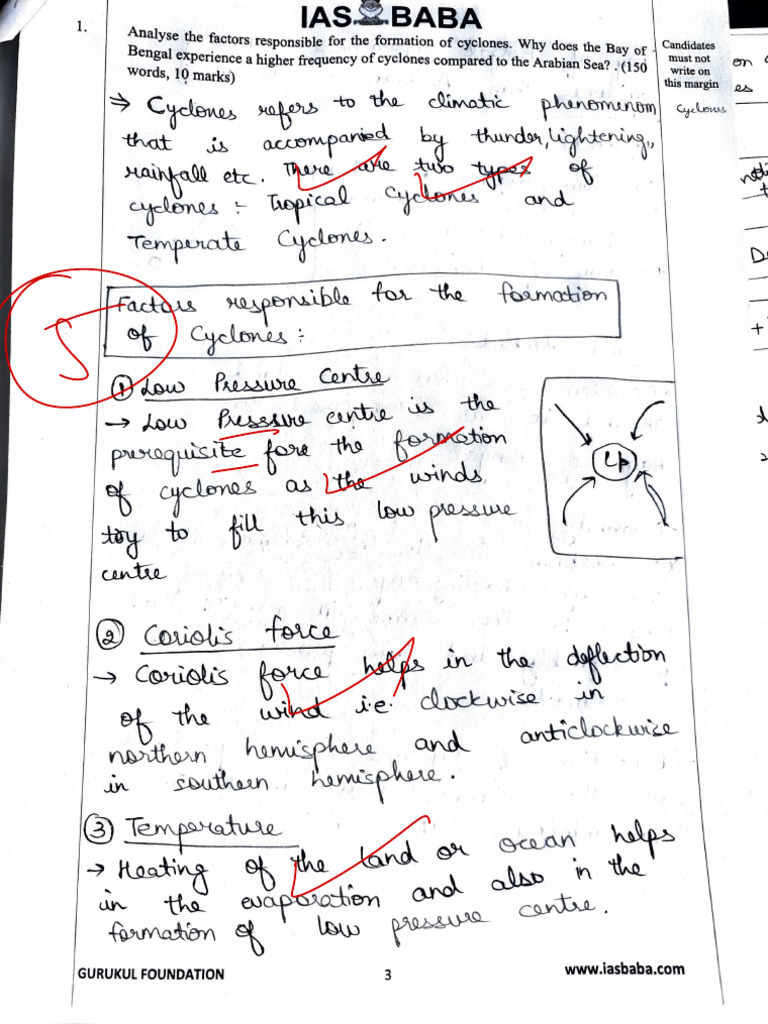 IAS BABA
1.
Analyse the factors responsible for the formation of cyclones. Why does the Bay of
Bengal experience a higher frequency of cyclones compared to the Arabian Sea? . (150
words, 10 marks)
Candidates
must not
write on
this margin
Cyclones
⇒ Cyclones refers to the climatic phenomenom
that is accompanied by thunder, lightening,
rainfall etc. There are two types of
cyclones :- Tropical Cyclones and
Temperate Cyclones.
5
Factors responsible for the formation
of Cyclones :-
① Low Pressure Centre
→ Low Presssure centre is the
prerequisite fore the formation
of cyclones as the winds
try to fill this low pressure
centre
LP
② Coriolis force
→ Coriolis force helps in the deflection
of the wind i.e. clockwise in
northern hemisphere and anticlockwise
in southern hemisphere.
③ Temperature
→ Heating of the land or ocean helps
in the evaporation and also in the
formation of low pressure centre.
GURUKUL FOUNDATION
3
www.iasbaba.com
on
es